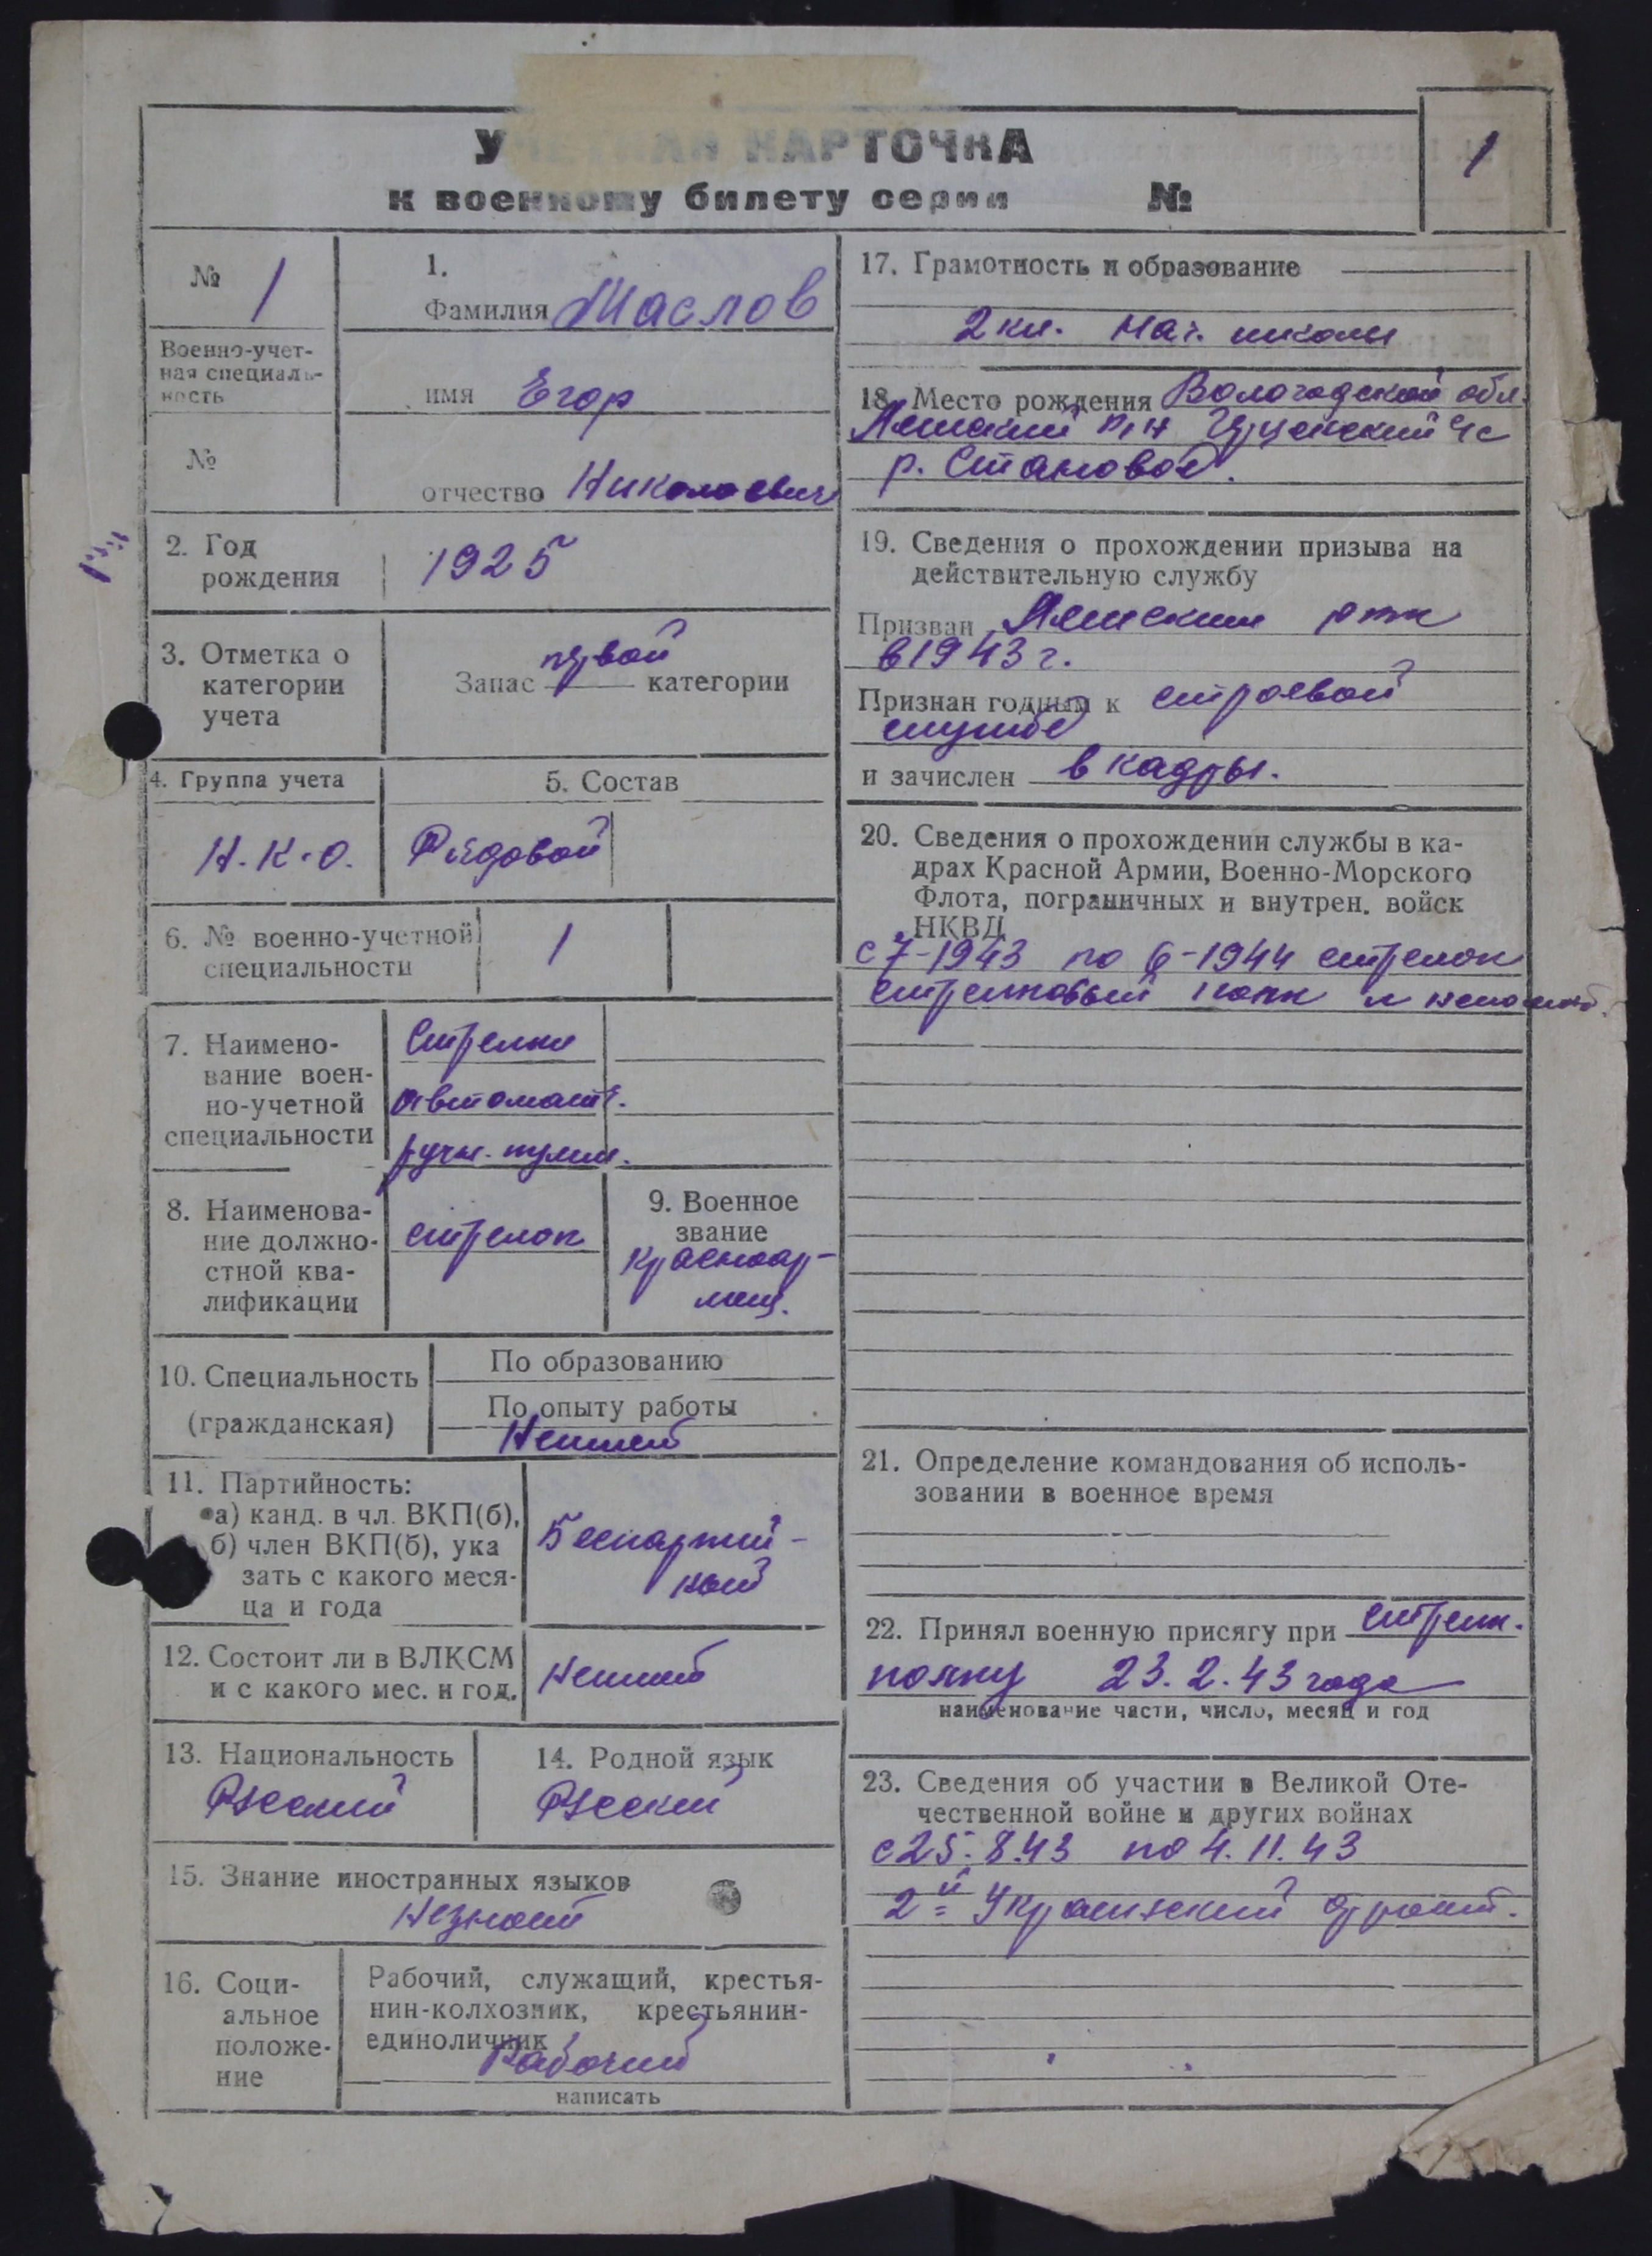 УЧЕТНАЯ КАРТОЧКА
к военному билету серии №
1
№ 1
Военно-учет-
ная специаль-
ность
№
1.
Фамилия Маслов
имя Егор
отчество Николаевич
2. Год
рождения
1925
3. Отметка о
категории
учета
первой
Запас категории
4. Группа учета
Н.К.О.
5. Состав
Рядовой
6. № военно-учетной
специальности
1
7. Наимено-
вание воен-
но-учетной
специальности
Стрелки
автоматч.
ручн. пулем.
8. Наименова-
ние должно-
стной ква-
лификации
стрелок
9. Военное
звание
красноар-
меец.
10. Специальность
(гражданская)
По образованию
По опыту работы
Неимеет
11. Партийность:
а) канд. в чл. ВКП(б),
б) член ВКП(б), ука
зать с какого меся-
ца и года
Беспартий-
ный
12. Состоит ли в ВЛКСМ
и с какого мес. и год.
13. Национальность
Русский
14. Родной язык
Русский
15. Знание иностранных языков
Незнает
16. Соци-
альное
положе-
ние
Рабочий, служащий, крестья-
нин-колхозник, крестьянин-
единоличник
Рабочий
написать
17. Грамотность и образование
2 кл. нач. школы
18. Место рождения Вологодской обл.
р-н с/с
р. Становое.
19. Сведения о прохождении призыва на
действительную службу
Призван
в 1943 г.
Признан годным к строевой
службе
и зачислен в кадры.
20. Сведения о прохождении службы в ка-
драх Красной Армии, Военно-Морского
Флота, пограничных и внутрен. войск
НКВД
с 7-1943 по 6-1944 стрелок
стрелковый полк
21. Определение командования об исполь-
зовании в военное время
22. Принял военную присягу при стрелк.
полку 23.2.43 года
наименование части, число, месяц и год
23. Сведения об участии в Великой Оте-
чественной войне и других войнах
с 25.8.43 по 4.11.43
2й Украинский фронт.